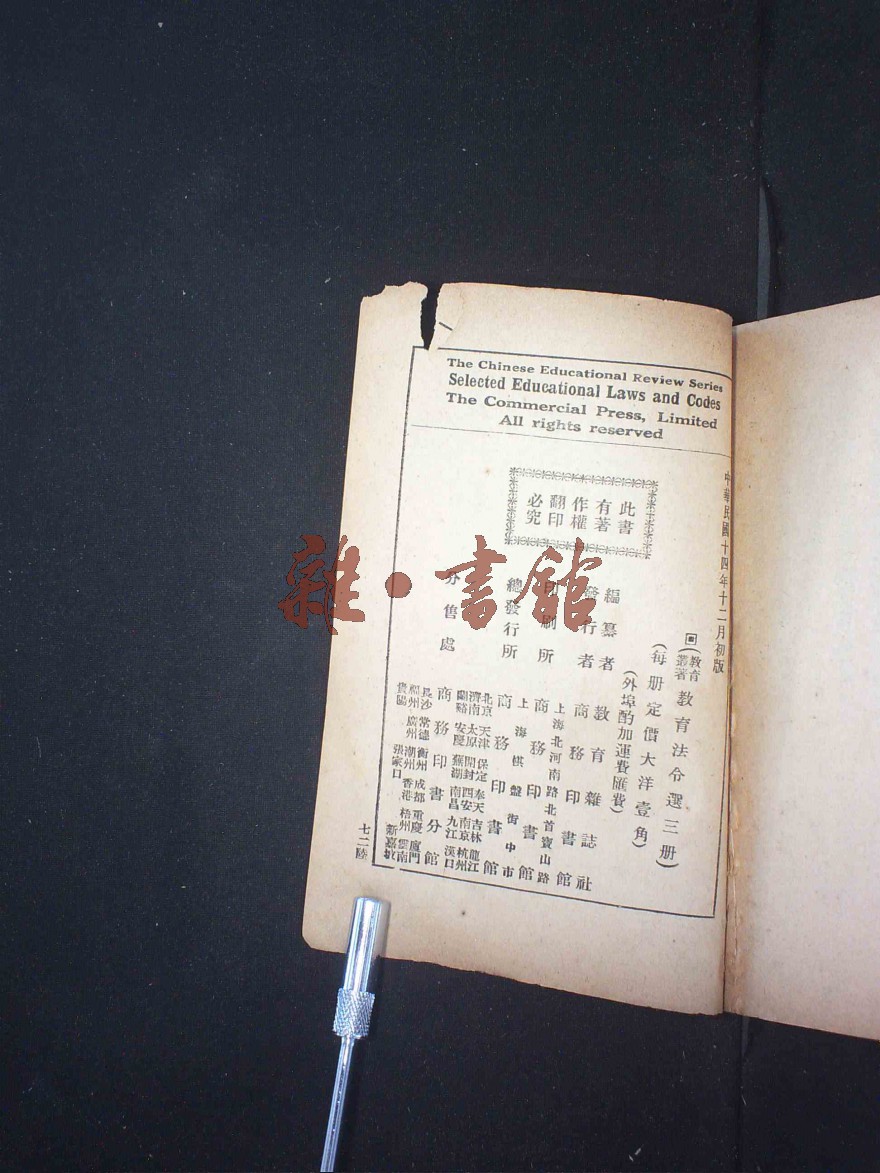 The Chinese Educational Review Series
Selected Educational Laws and Codes
The Commercial Press, Limited
All rights reserved
中華民國十四年十二月初版
(教育叢著)教育法令選三册)
(每册定價大洋壹角)
(外埠酌加運費匯費)
此書
有著
作權
翻印
必究
編纂者 教育雜誌社
發行者 商務印書館
上海北河南路北首寶山路
印刷所 商務印書館
上海棋盤街中市
總發行所 商務印書館
北京 天津 保定 奉天 吉林 龍江
濟南 太原 開封 西安 南京 杭州
蘭谿 安慶 蕪湖 南昌 九江 漢口
分售處 商務印書分館
長沙 常德 衡州 成都 重慶 廈門
福州 廣州 潮州 香港 梧州 雲南
貴陽 張家口 新嘉坡
七二陸
雜·書館